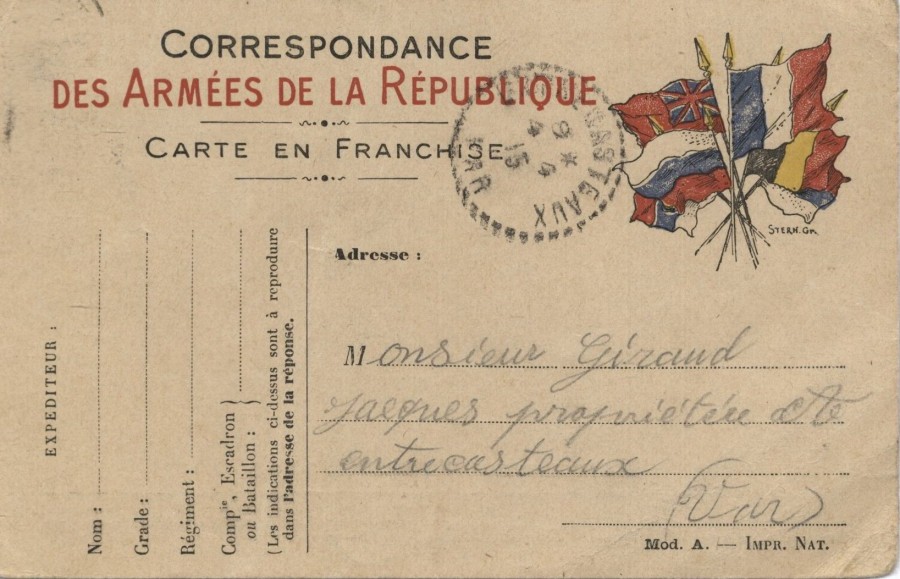 CORRESPONDANCE
DES ARMÉES DE LA RÉPUBLIQUE
CARTE EN FRANCHISE
ENTRECASTEAUX
9 * 4
4 15
VAR
STERN. Gr.
EXPEDITEUR :
Nom :
Grade :
Régiment :
Compie, Escadron
ou Bataillon :
(Les indications ci-dessus sont à reproduire
dans l'adresse de la réponse.
Adresse :
Monsieur Giraud
Jacques propriétére
entrecasteaux
(Var)
Mod. A. — IMPR. NAT.